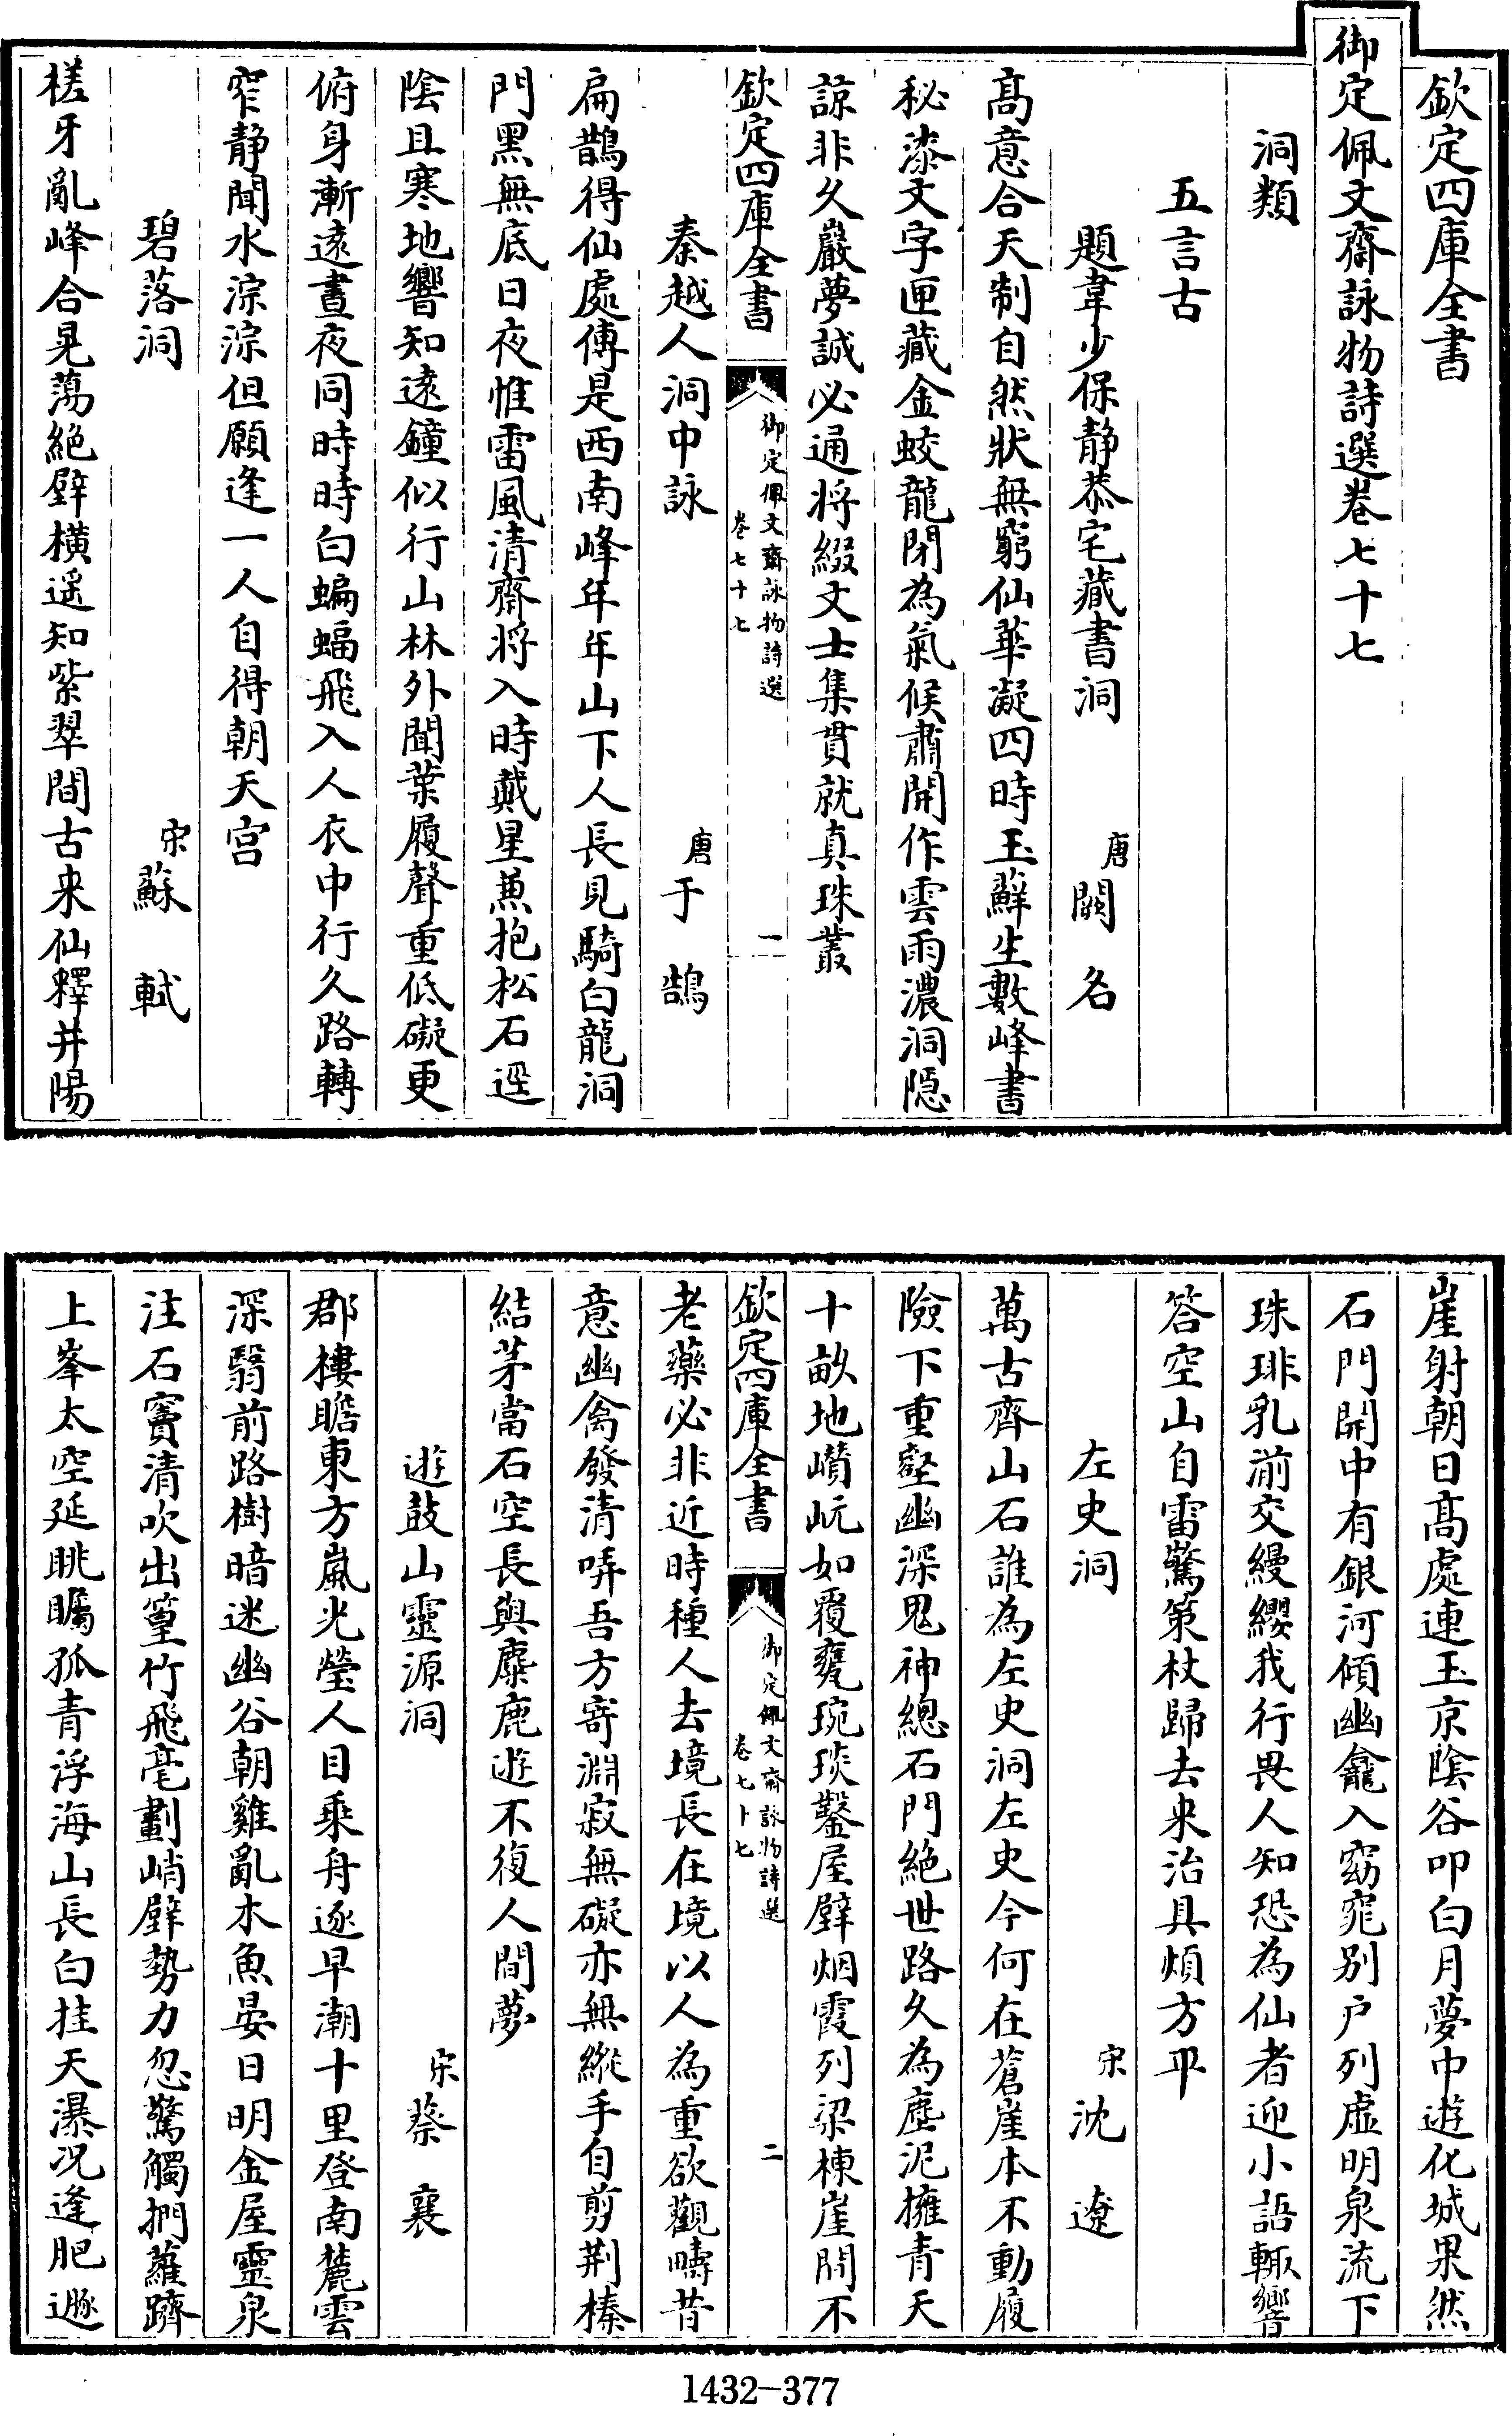 欽定四庫全書
御定佩文齋詠物詩選卷七十七
洞類
五言古
題韋少保静恭宅藏書洞 唐 闕名
髙意合天制自然狀無窮仙華凝四時玉蘚生數峰書
秘漆文字匣藏金蛟龍閉為氣候肅開作雲雨濃洞隠
諒非久巖夢誠必通将綴文士集貫就真珠叢
欽定四庫全書 御定佩文齋詠物詩選 卷七十七 一
秦越人洞中詠 唐 于鵠
扁鵲得仙處傳是西南峰年年山下人長見騎白龍洞
門黑無底日夜惟雷風清齋将入時戴星兼抱松石逕
陰且寒地響知逺鐘似行山林外聞葉履聲重低礙更
俯身漸逺晝夜同時時白蝙蝠飛入人衣中行久路轉
窄静聞水淙淙但願逢一人自得朝天宫
碧落洞 宋 蘇軾
槎牙亂峰合晃蕩絶壁横遥知紫翠間古来仙釋并陽
崖射朝日髙處連玉京陰谷叩白月夢中遊化城果然
石門開中有銀河傾幽龕入窈窕别户列虚明泉流下
珠琲乳湔交縵纓我行畏人知恐為仙者迎小語輒響
答空山自雷驚策杖歸去来治具煩方平
左史洞 宋 沈遼
萬古齊山石誰為左史洞左史今何在蒼崖本不動履
險下重壑幽深鬼神總石門絶世路久為塵泥擁青天
十畝地巑岏如覆甕琬琰鑿屋壁烟霞列梁棟崖間不
欽定四庫全書 御定佩文齋詠物詩選 卷七十七 二
老藥必非近時種人去境長在境以人為重欲觀疇昔
意幽禽發清哢吾方寄淵寂無礙亦無縱手自剪荆榛
結茅當石空長與麋鹿遊不復人間夢
遊鼓山靈源洞 宋 蔡襄
郡樓瞻東方嵐光瑩人目乘舟逐早潮十里登南麓雲
深翳前路樹暗迷幽谷朝雞亂木魚晏日明金屋靈泉
注石竇清吹出篁竹飛毫劃峭壁勢力忽驚觸捫蘿躋
上峯太空延眺矚孤青浮海山長白挂天瀑况逢肥遯
1432-377